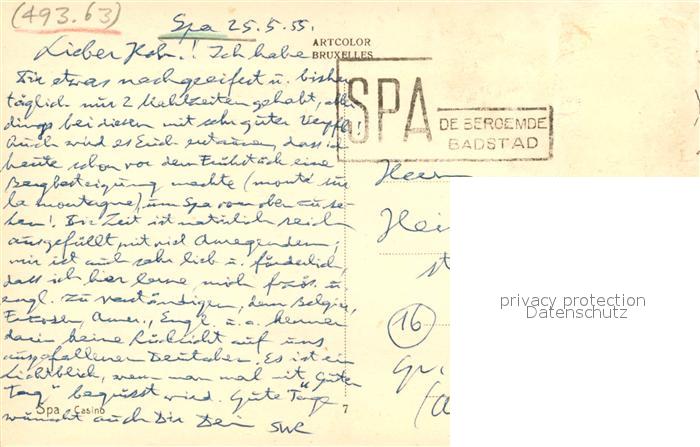 (493.63)
Spa 25.5.55.
ARTCOLOR
BRUXELLES
Lieber Hob.! Ich habe
Dir etwas nachgeeifert u. bisher
täglich nur 2 Mahlzeiten gehabt, aller
dings bei diesen mit sehr guter Verpfl.!
Auch wird es Euch erstaunen, dass ich
heute schon vor dem Frühstück eine
Bergbesteigung machte (monté sur
la montagne), um Spa von oben zu se-
hen! Die Zeit ist natürlich reich
ausgefüllt mit viel Anregendem;
mir ist auch sehr lieb u. förderlich,
dass ich hier lerne, mich frzös. u.
engl. zu verständigen, denn Belgier,
Franzosen, Amer., Engl. u.a. kennen
darin keine Rücksicht auf uns
ausgefallenen Deutschen. Es ist ein
Lichtblick, wenn man mal mit "Guten
Tag" begrüsst wird. Gute Tage
wünscht auch Dir Dein
Spa - Casino
7
SPA
DE BEROEMDE
BADSTAD
Herrn
16
privacy protection
Datenschutz